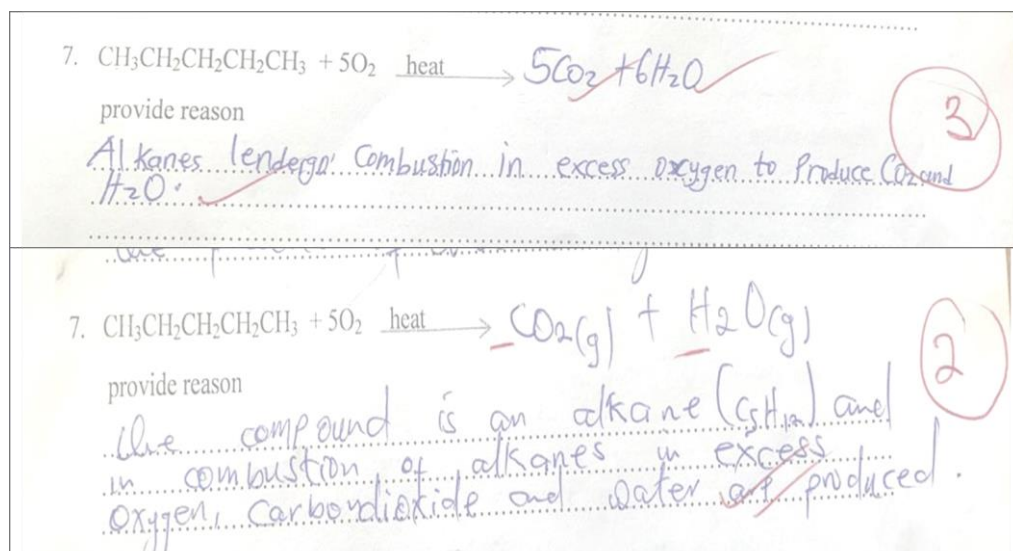 7. CH₃CH₂CH₂CH₂CH₃ + 5O₂ heat → 5CO₂ + 6H₂O
provide reason
3
Alkanes Undergo Combustion in excess oxygen to Produce CO₂ and
H₂O.
7. CH₃CH₂CH₂CH₂CH₃ + 5O₂ heat → CO₂(g) + H₂O(g)
2
provide reason
The compound is an alkane (C₅H₁₂) and
in combustion of alkanes in excess
oxygen, carbondioxide and water are produced.